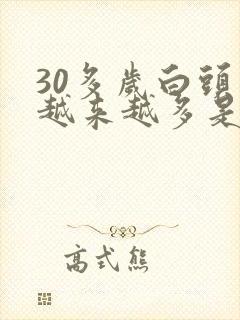 30多歲白頭
越来越多是
高式熊